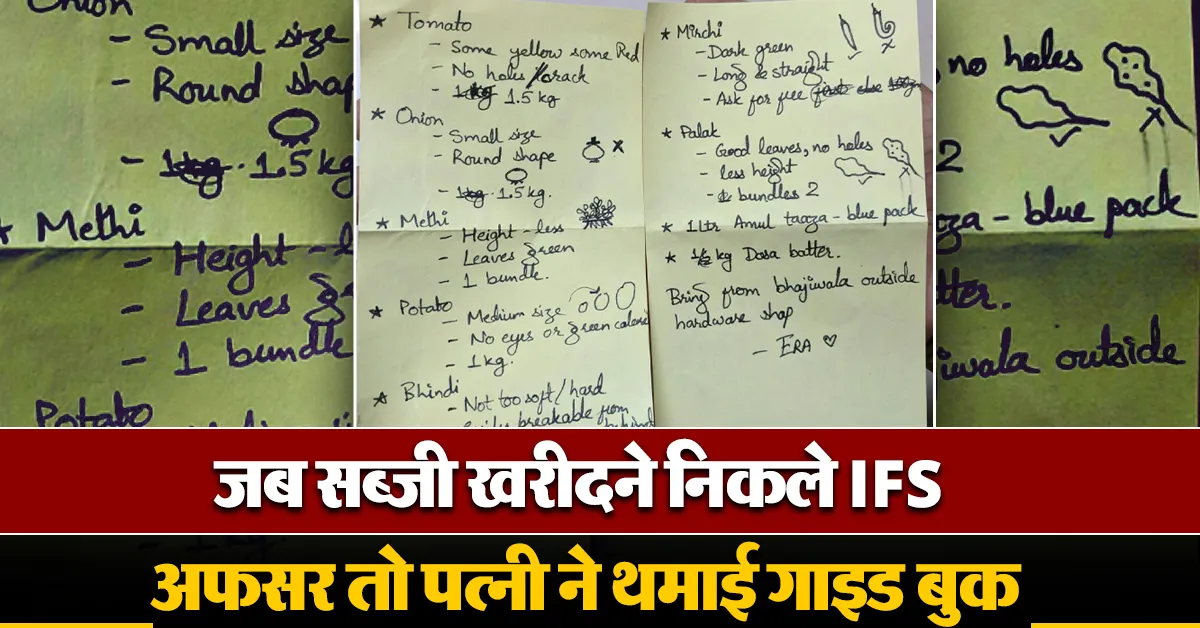 Onion
- Small size
- Round shap
- 1kg 1.5 kg
★ Methi
- Height - l
- Leaves
- 1 bundle
Potato
★ Tomato
- Some yellow some Red
- No holes / crack
- 1kg 1.5 kg
★ Onion
- Small size
- Round shape
- 1kg 1.5 kg.
★ Methi
- Height - less
- Leaves green
- 1 bundle.
★ Potato
- Medium size
- No eyes or green
- 1 kg.
★ Bhindi
- Not too soft / hard
breakable from
★ Mirchi
- Dark green
- Long & straight
- Ask for free
★ Palak
- Good leaves, no holes
- less height
- bundles 2
★ 1 Ltr Amul taaza - blue pack
★ kg Dosa batter.
Bring from bhajiwala outside
hardware shop
- ERA ♡
no holes
2
za - blue pack
tter.
iwala outside
जब सब्जी खरीदने निकले IFS
अफसर तो पत्नी ने थमाई गाइड बुक